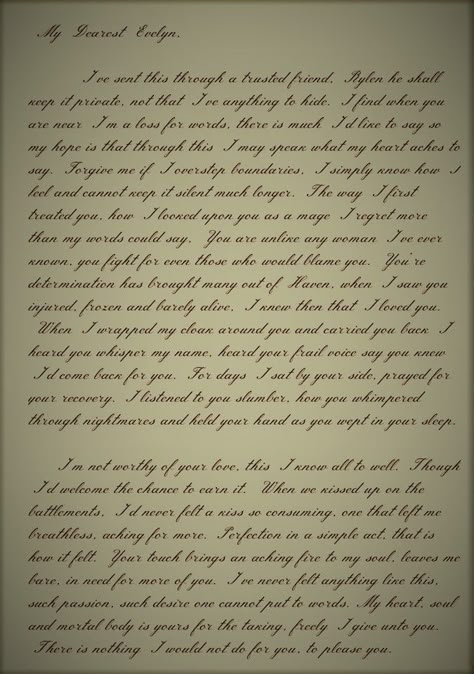 My Dearest Evelyn,
I've sent this through a trusted friend, Rylen he shall
keep it private, not that I've anything to hide. I find when you
are near I'm a loss for words, there is much I'd like to say so
my hope is that through this I may speak what my heart aches to
say. Forgive me if I overstep boundaries, I simply know how I
feel and cannot keep it silent much longer. The way I first
treated you, how I looked upon you as a mage I regret more
than my words could say. You are unlike any woman I've ever
known, you fight for even those who would blame you. You're
determination has brought many out of Haven, when I saw you
injured, frozen and barely alive, I knew then that I loved you.
When I wrapped my cloak around you and carried you back I
heard you whisper my name, heard your frail voice say you knew
I'd come back for you. For days I sat by your side, prayed for
your recovery. I listened to you slumber, how you whimpered
through nightmares and held your hand as you wept in your sleep.
I'm not worthy of your love, this I know all to well. Though
I'd welcome the chance to earn it. When we kissed up on the
battlements, I'd never felt a kiss so consuming, one that left me
breathless, aching for more. Perfection in a simple act, that is
how it felt. Your touch brings an aching fire to my soul, leaves me
bare, in need for more of you. I've never felt anything like this,
such passion, such desire one cannot put to words. My heart, soul
and mortal body is yours for the taking, freely I give unto you.
There is nothing I would not do for you, to please you.